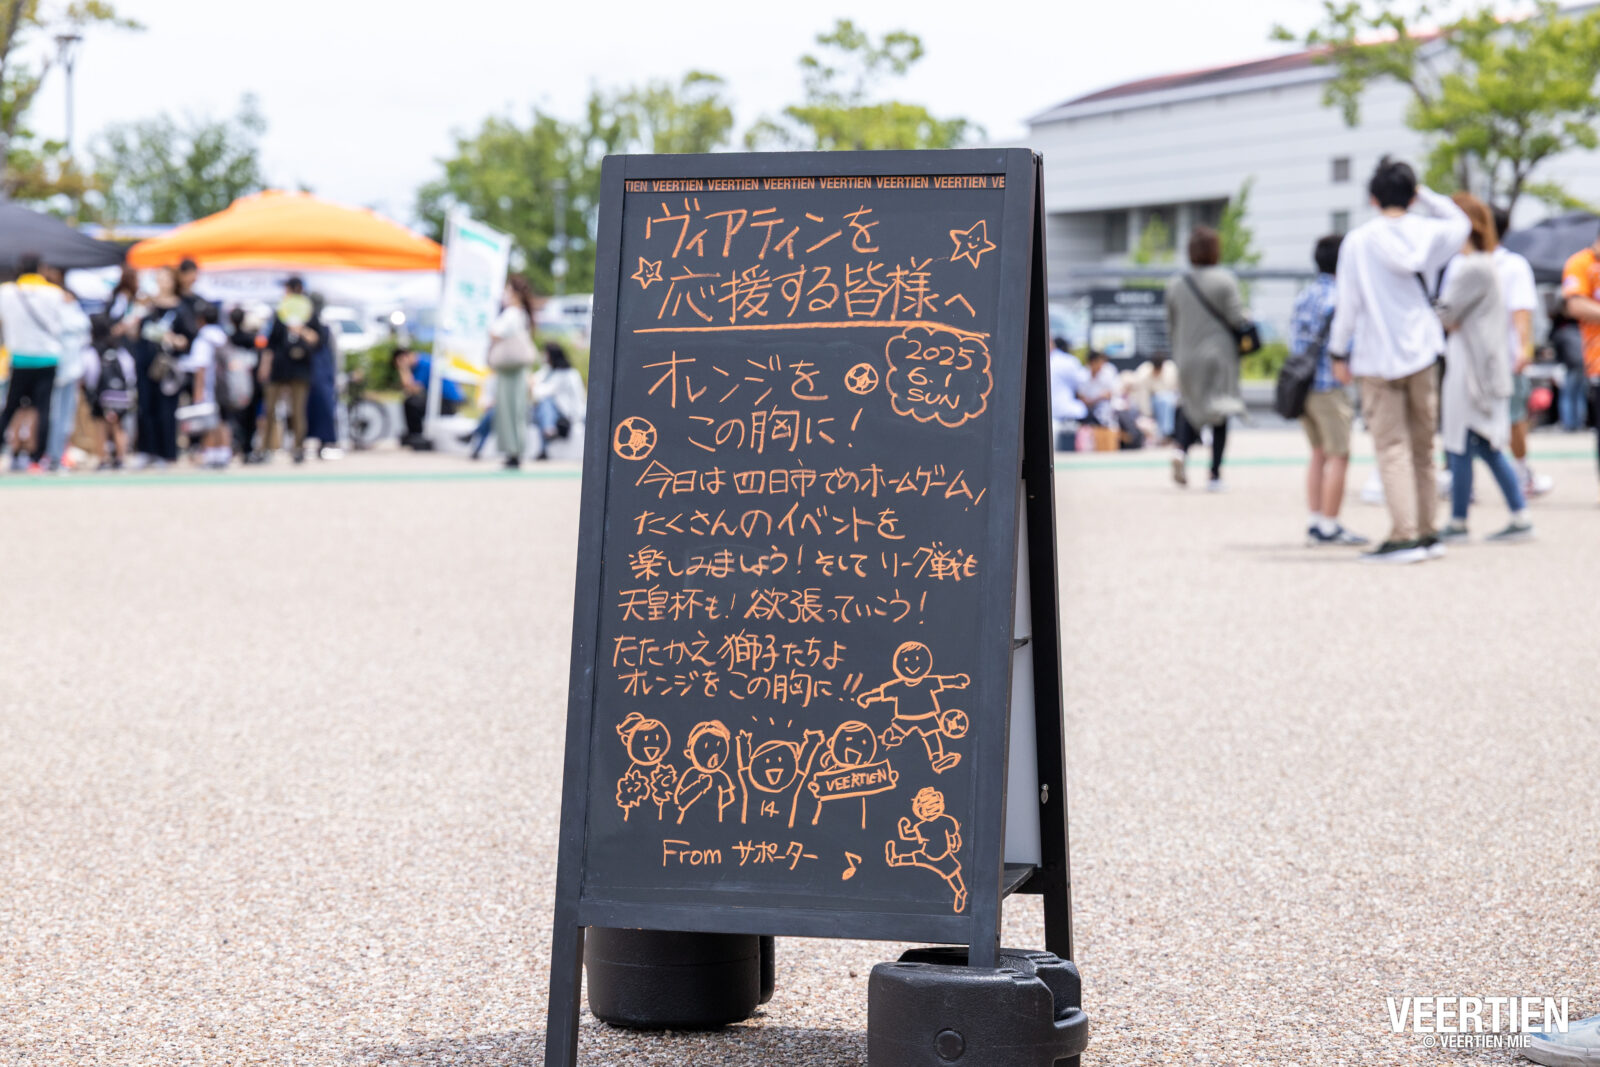 TIEN VEERTIEN VEERTIEN VEERTIEN VEERTIEN VEERTIEN VEERTIEN VE
ヴィアティンを
応援する皆様へ
2025
6.1
SUN
オレンジを
この胸に!
今日は四日市でのホームゲーム!
たくさんのイベントを
楽しみましょう!そしてリーグ戦も
天皇杯も!欲張っていこう!
たたかえ獅子たちよ
オレンジをこの胸に!!
VEERTIEN
14
From サポーター
VEERTIEN
© VEERTIEN MIE